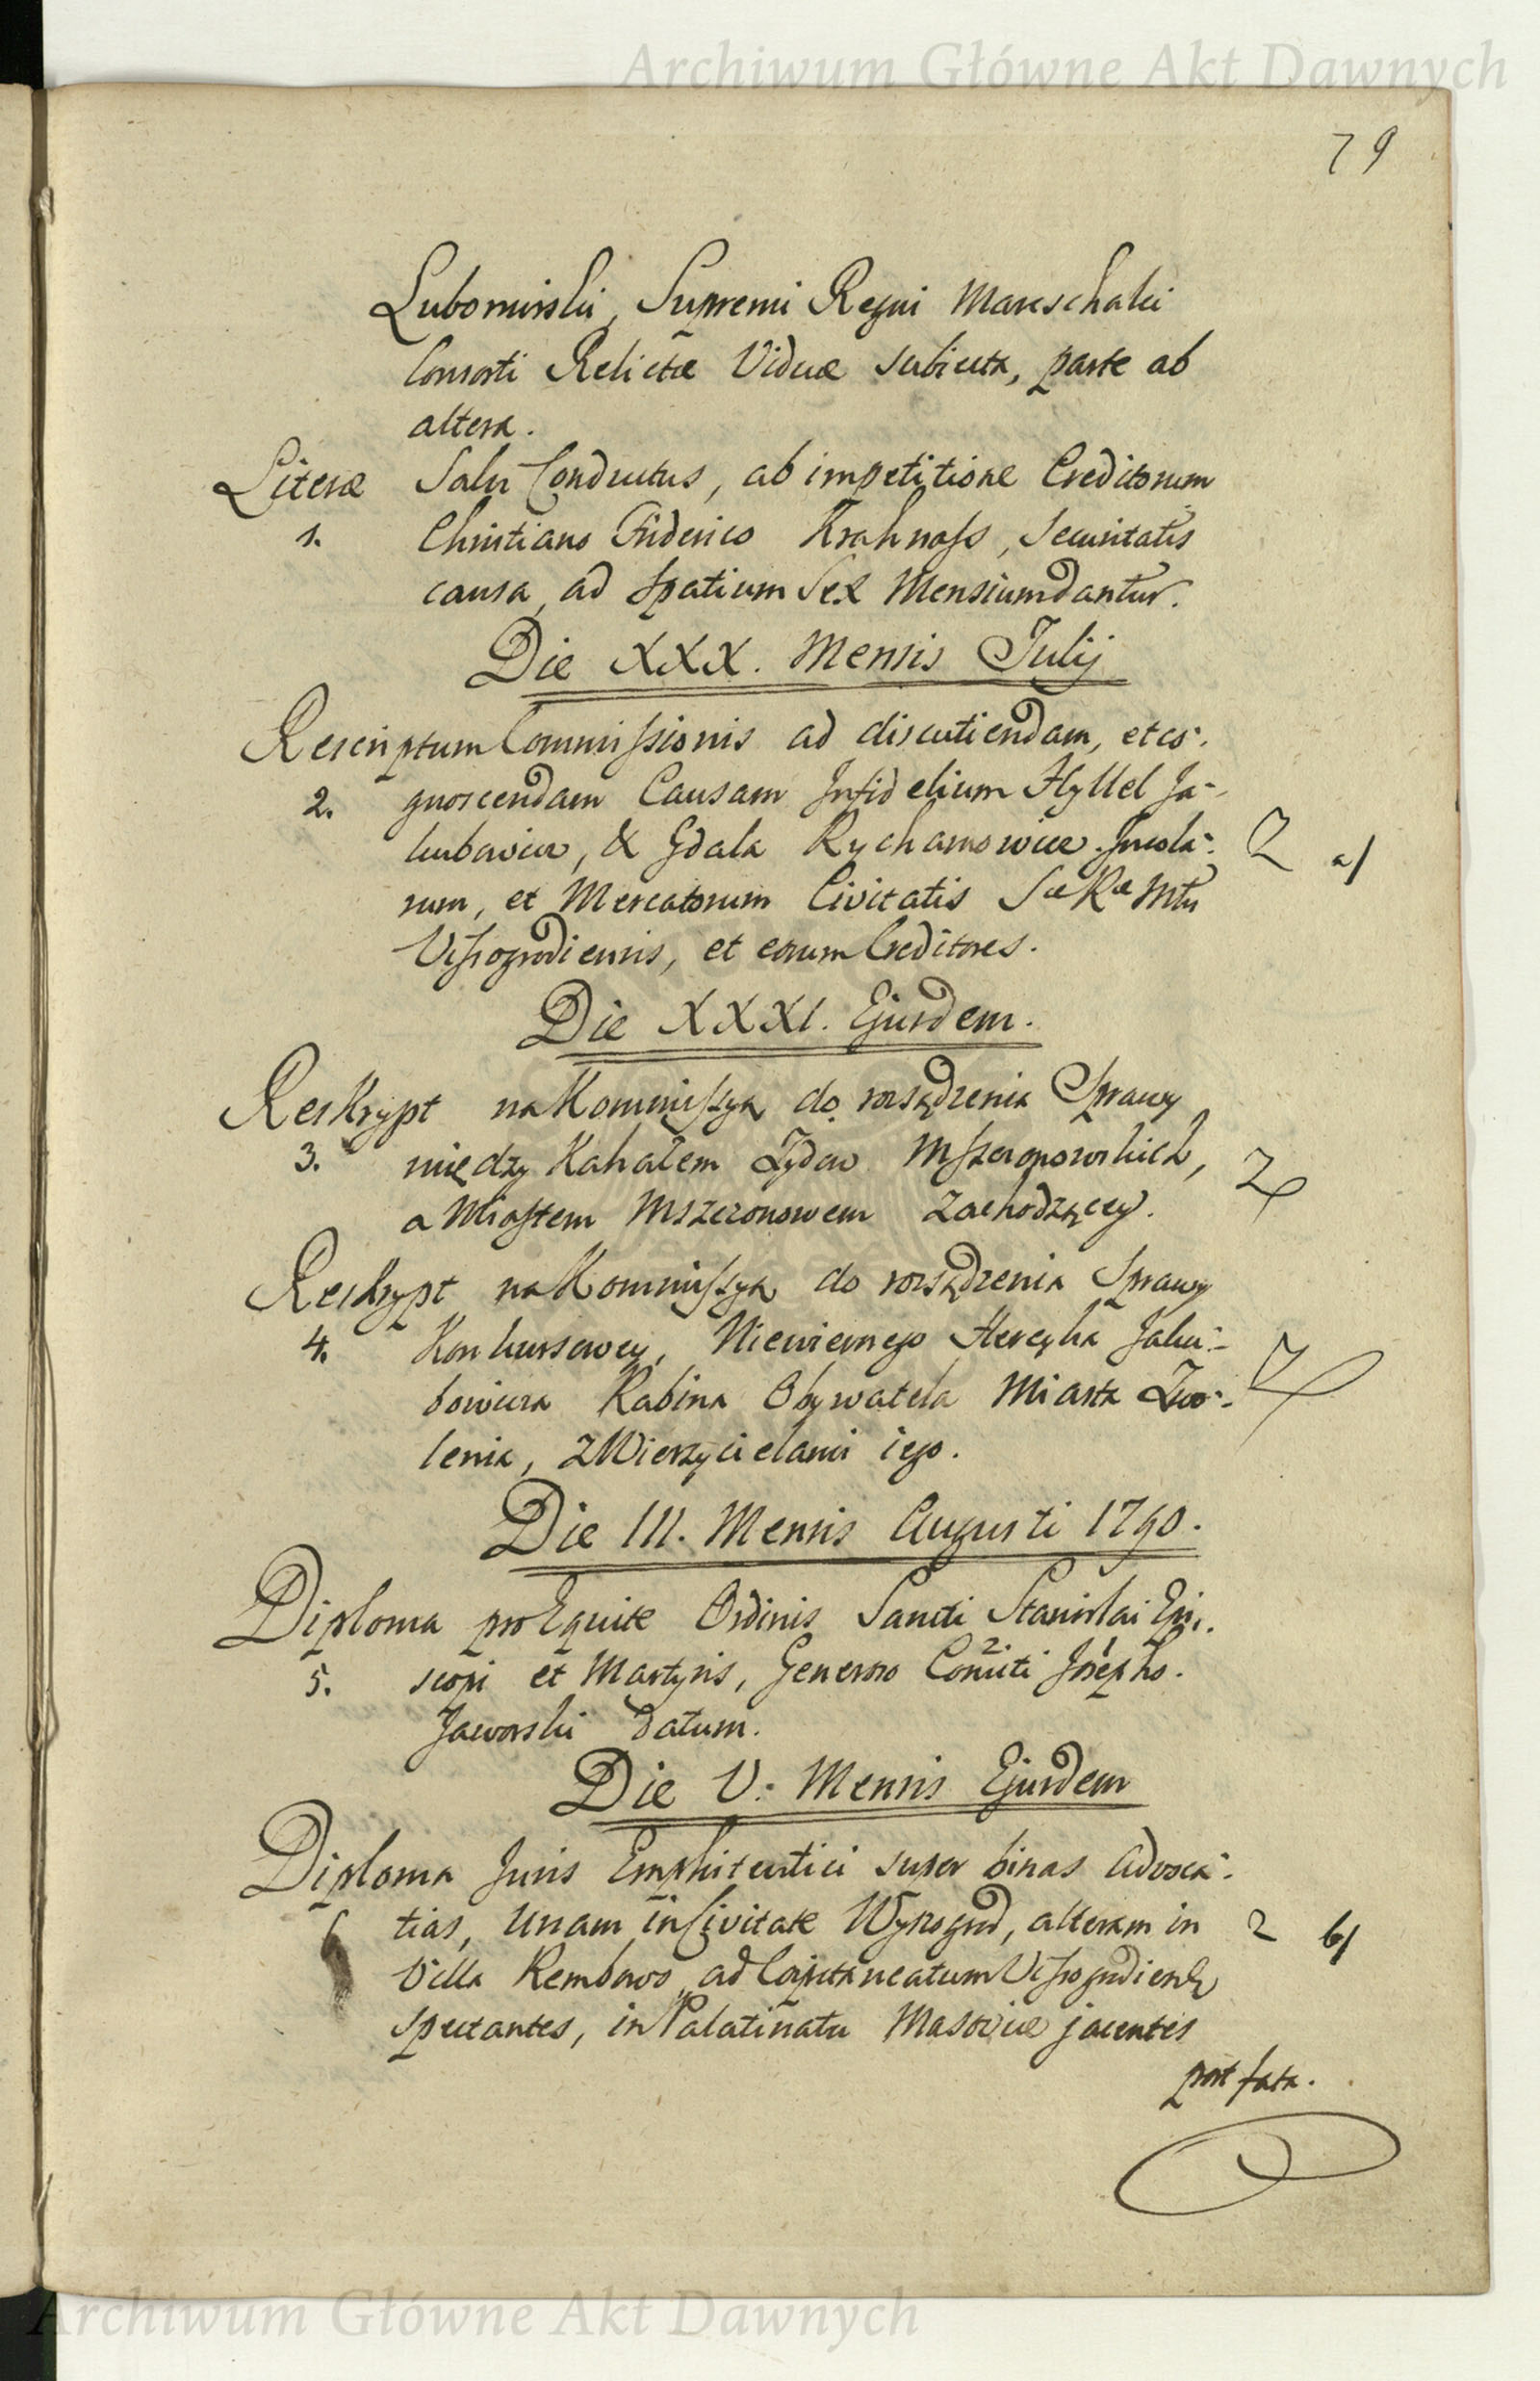 Archiwum Główne Akt Dawnych
79
Lubomirski, Supremi Regni Mareschalci
Consorti Relictæ Viduæ subiecta, parte ab
altera.
Literæ Salvi Conductus, ab impetitione Creditorum
1. Christiano Friderico Krahnass, Securitatis
causa, ad Spatium Sex Mensium dantur.
Die XXX. Mensis Julij
Rescriptum Commissionis ad discutiendam, et co-
2. gnoscendam Causam Infidelium Hyllel Ja-
kubowicz, & Gdala Rychamowicz Incola- 2 a/
rum, et Mercatorum Civitatis Sæ Ræ Mtis
Vissogrodiensis, et eorum Creditores.
Die XXXI. Ejusdem.
Reskrypt na Kommissyą do rozsądzenia Sprawy
3. między Kahałem Żydow Mszczonowskich, 2
a Miastem Mszczonowem Zachodzącey.
Reskrypt na Kommissyą do rozsądzenia Sprawy
4. Konkursowey, Niewiernego Herczyka Jaku-
bowicza Rabina Obywatela Miasta Zwo-
lenia, z Wierzycielami iego.
Die III. Mensis Augusti 1790.
Diploma pro Equite Ordinis Sancti Stanislai Epi-
5. scopi et Martyris, Generoso Comiti Josepho
2. 1
Jaworski Datum.
Die V. Mensis Ejusdem
Diploma Juris Emphiteutici super binas Advoca-
6 tias, Unam in Civitate Wyszogrod, alteram in 2 b/
Villa Rembowo, ad Capitaneatum Vissogrodiens
spectantes, in Palatinatu Masoviæ jacentes
post fata.
Archiwum Główne Akt Dawnych